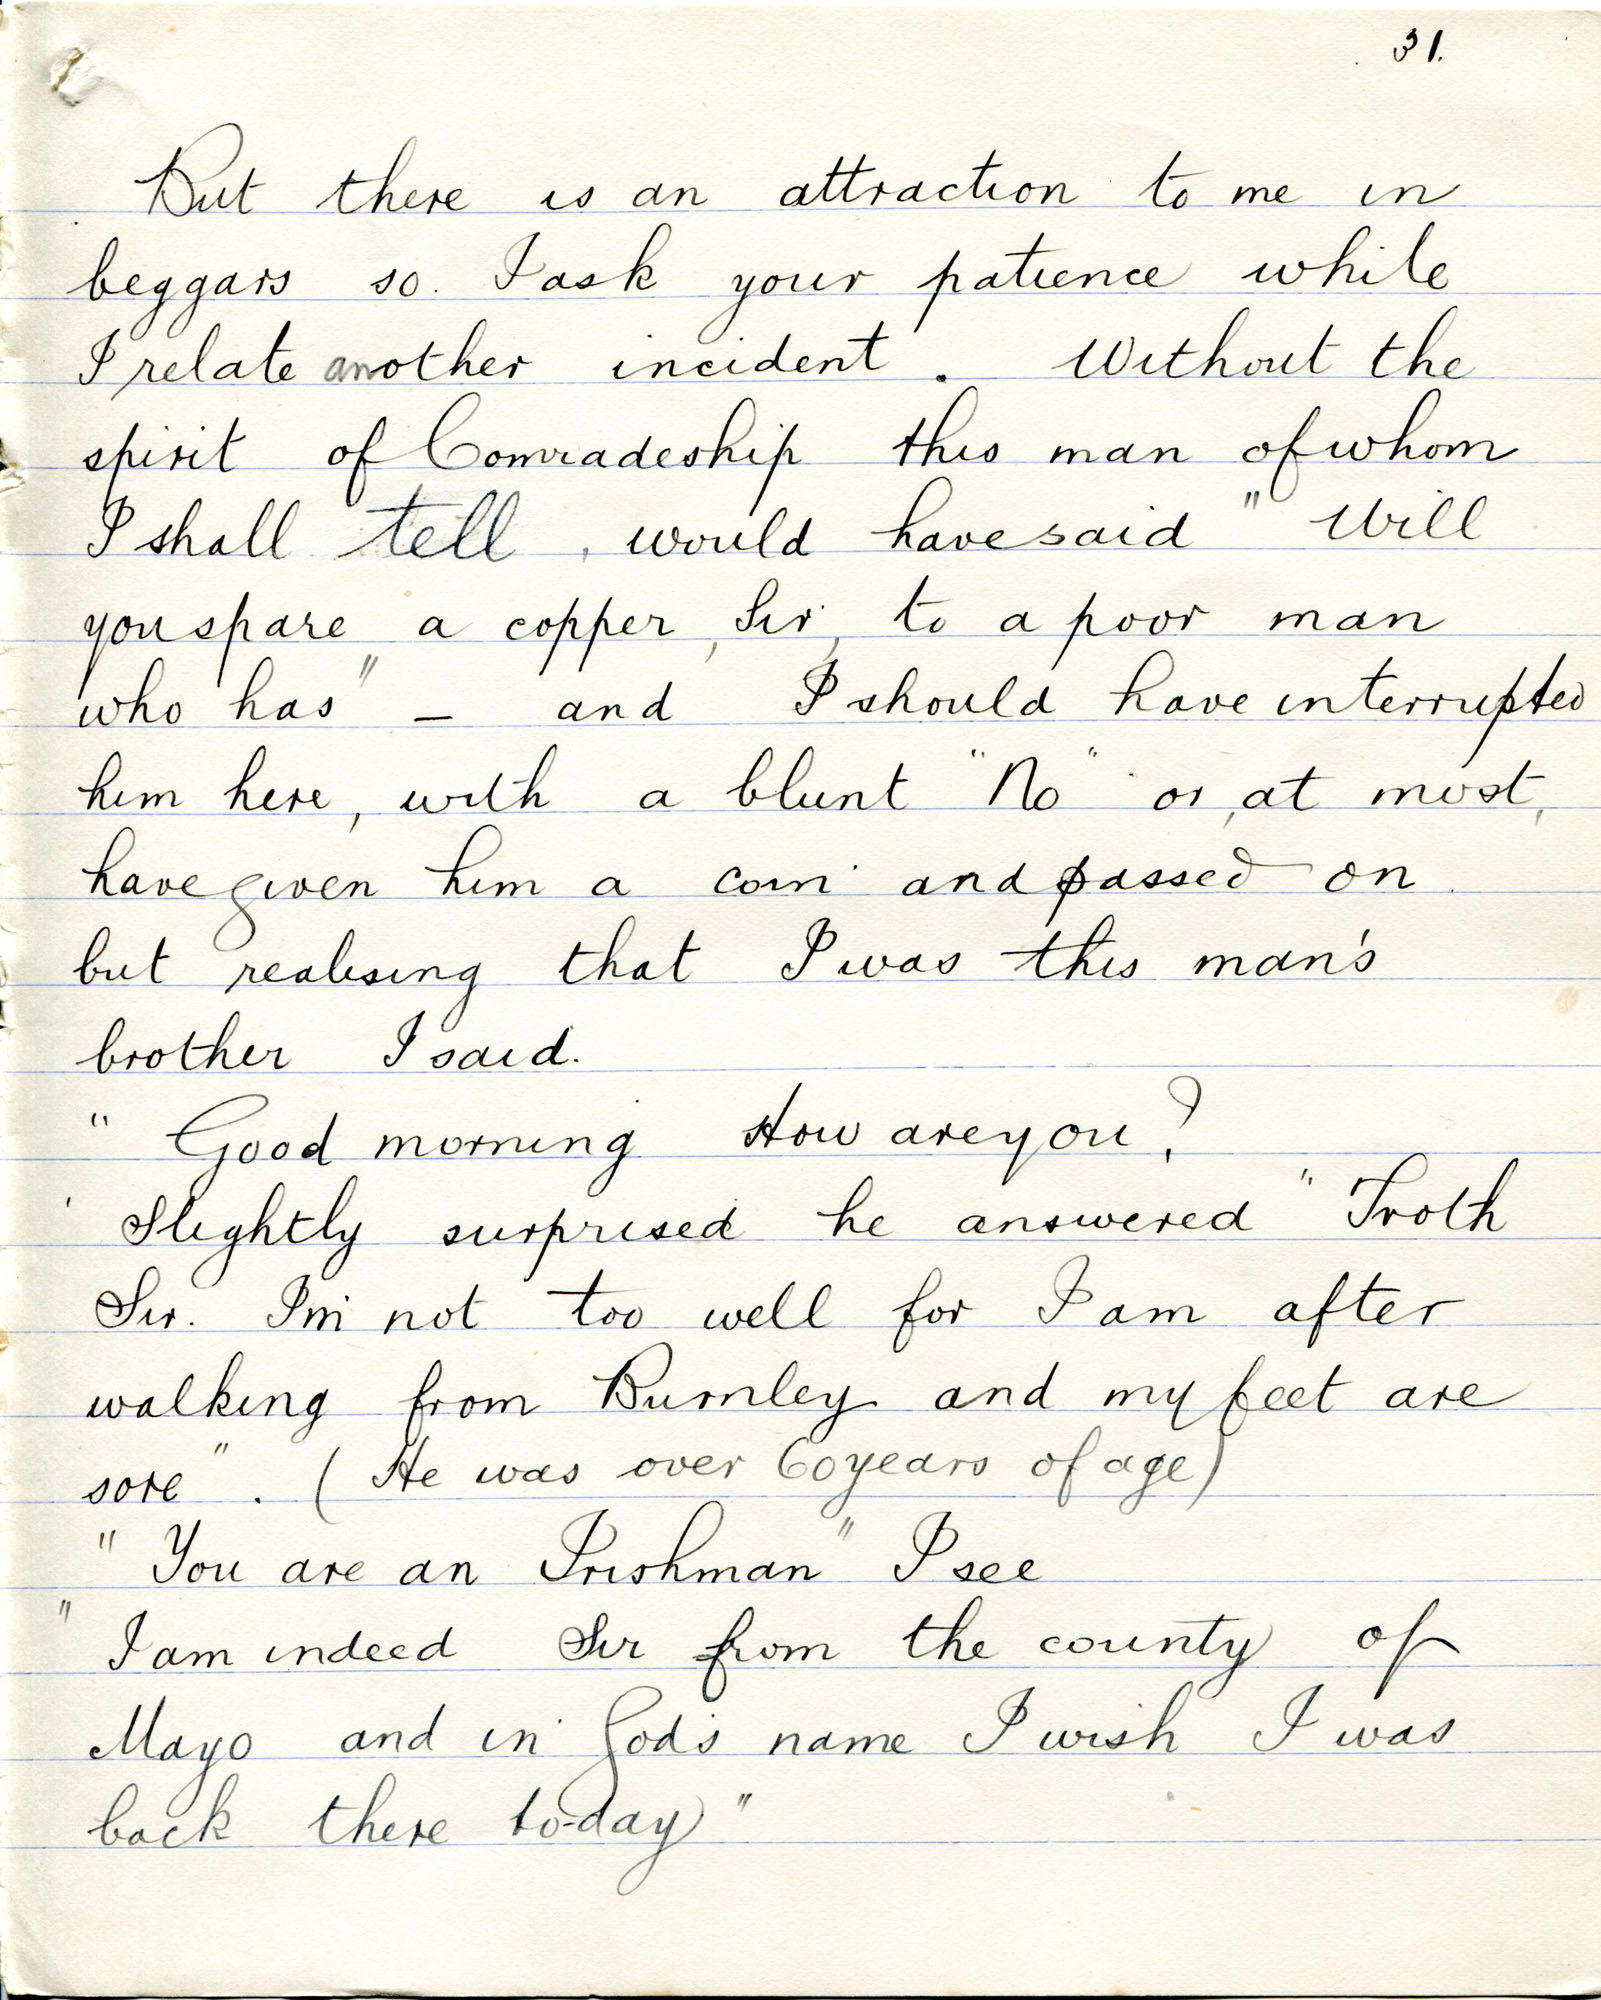 31.
But there is an attraction to me in
beggars so. I ask your patience while
I relate another incident . Without the
spirit of Comradeship this man of whom
I shall tell , would have said " Will
you spare a copper, Sir, to a poor man
who has" – and I should have interrupted
him here, with a blunt "No" or, at most,
have given him a coin and passed on.
but realising that I was this man's
brother I said.
" Good morning How are you?
' Slightly surprised he answered " Troth
Sir. I'm not too well for I am after
walking from Burnley and my feet are
sore" . ( He was over 60 years of age)
" You are an Irishman" I see
" I am indeed Sir from the county of
Mayo and in God's name I wish I was
back there to-day"